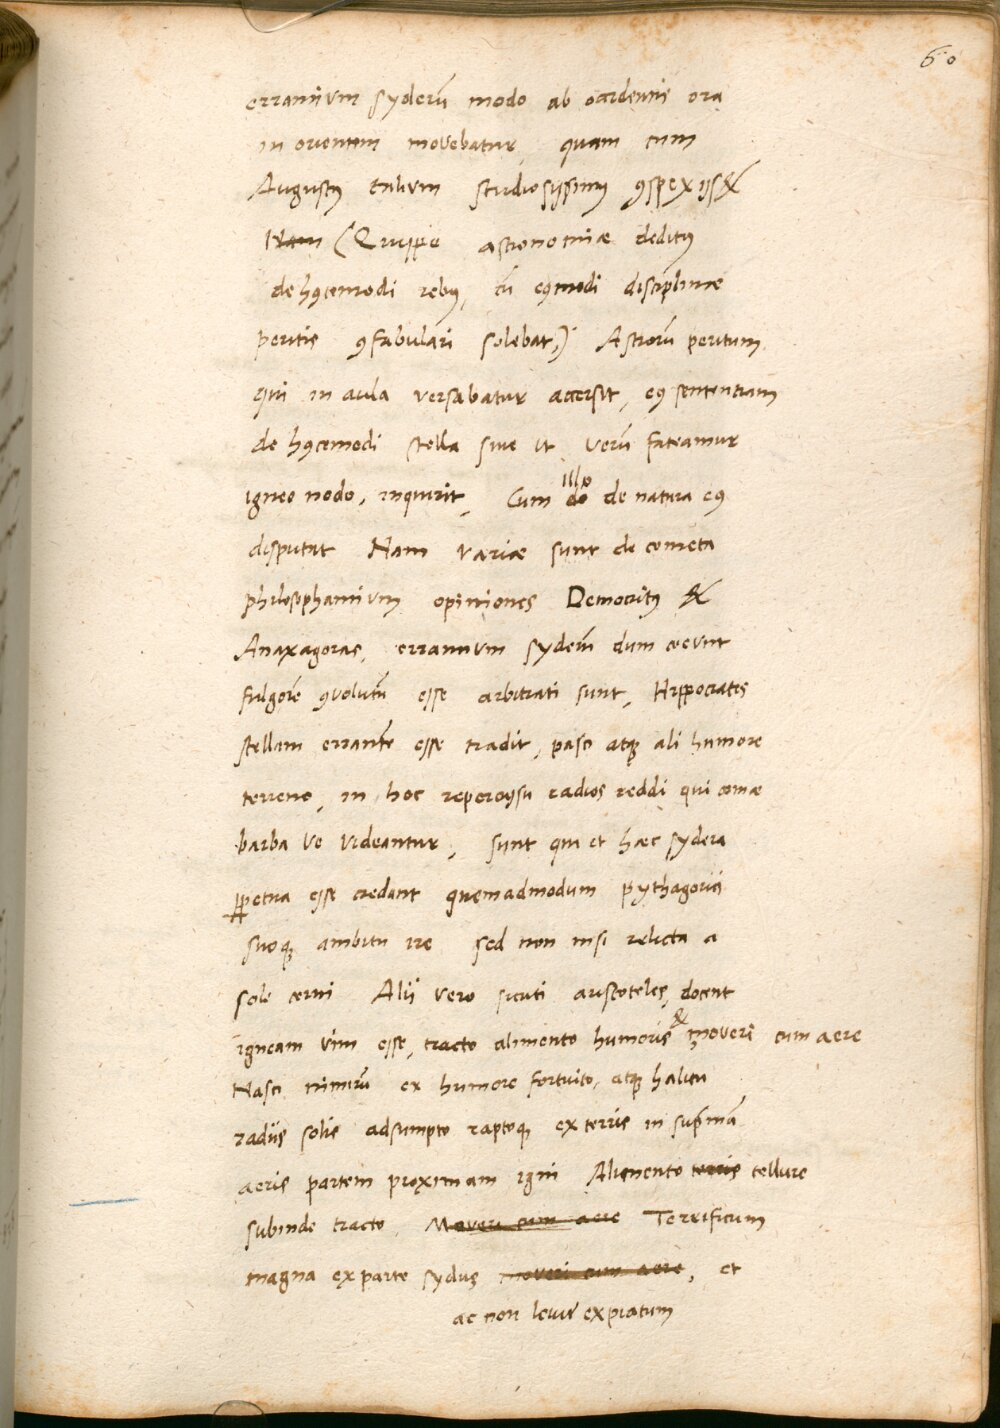 60
errantium syderū modo ab occidentis ora
in orientem movebatur, quam cum
Augustꝰ talium studiosissimꝰ ꝯspexisset
Nam (Quippe astronomiæ deditꝰ
de hꝰcemodi rebꝰ, cū eꝰmodi disciplinæ
peritis ꝯfabulari solebat,) Astrorū peritum
qui in aula versabatur accersit, eꝰ sententiam
de hꝰcemodi stella sive ut verū fateamur
igneo nodo, inquirit, Cum do illo de natura eꝰ
disputat Nam variæ sunt de cometa
philosophantium opiniones Democritꝰ &
Anaxagoras, errantium syderū dum coeunt
fulgorē ꝯvolutū esse arbitrati sunt, Hippocrates
stellam errantē esse tradit, pasci atqꝫ ali humore
terreno, in hoc repercussu radios reddi qui comæ
barba ve videantur, sunt qui et hæc sydera
ꝑpetua esse credant quemadmodum pythagorici
suoqꝫ ambitu ire sed non nisi relicta a
sole cerni Alii vero sicuti aristoteles, docent
igneam vim esse, tracto alimento humoris & moveri cum aere
Nasci nimirū ex humore fortuito, atqꝫ halitu
radiis solis adsumpto raptoqꝫ ex terris in supmā
aeris partem proximam igni Alimento terris tellure
subinde tracto, Moveri cum aere Terrificum
magna ex parte sydus moveri cum aere, et
ac non leviter expiatum